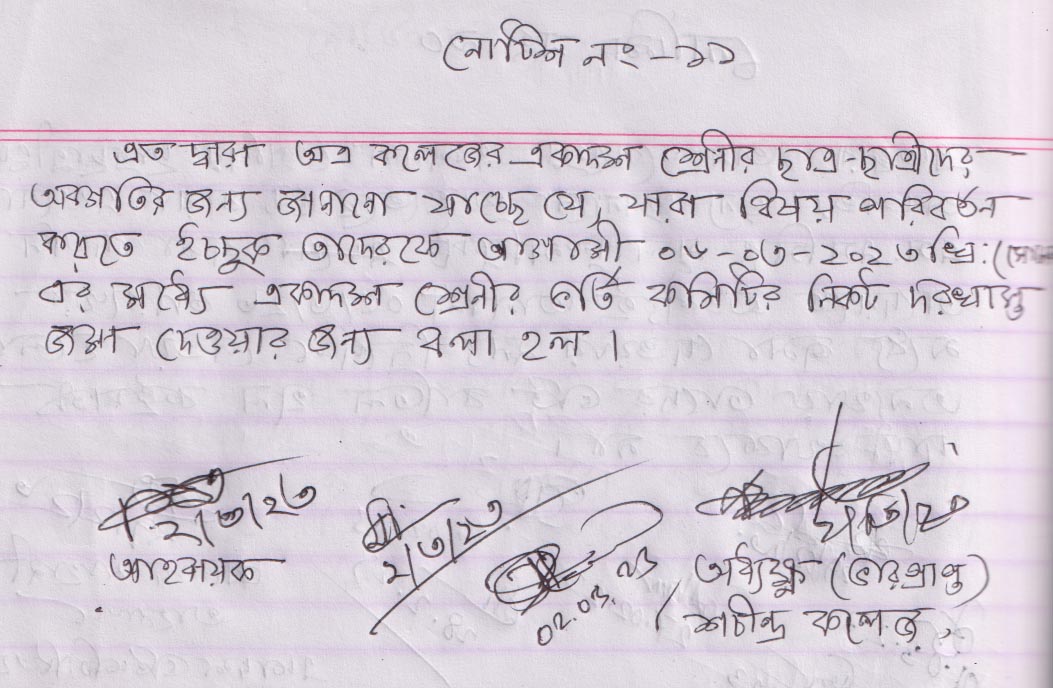 নোটিশ নং - ১১
এত দ্বারা অত্র কলেজের একাদশ শ্রেনীর ছাত্র-ছাত্রীদের
অবগতির জন্য জানানো যাচ্ছে যে, যারা বিষয় পরিবর্তন
করতে ইচ্ছুক তাদেরকে আগামী ০৬-০৩-২০২৩ খ্রি: (সোম
এর মধ্যে একাদশ শ্রেনীর ভর্তি কমিটির নিকট দরখাস্ত
জমা দেওয়ার জন্য বলা হল।
২/৩/২৩
আহবায়ক
২/৩/২৩
02.03.23
২/৩/২৩
অধ্যক্ষ (ভারপ্রাপ্ত)
শচীন্দ্র কলেজ,